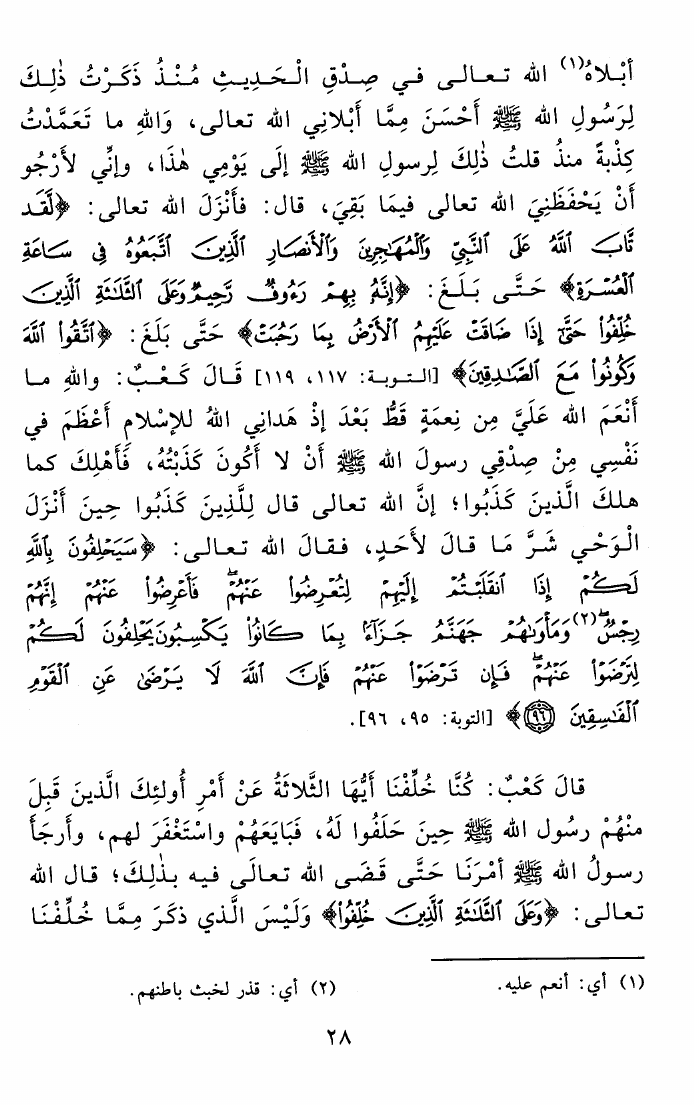 أَبْلاهُ(١) الله تـعـالـى فـي صِـدْقِ الْـحَـدِيـثِ مُـنْـذُ ذَكَـرْتُ ذٰلِـكَ
لِرَسُولِ الله ﷺ أَحْسَنَ مِمَّا أَبْلانِي الله تعالى، وَاللهِ ما تَعَمَّدْتُ
كِذْبةً منذُ قلتُ ذٰلِكَ لِرسولِ الله ﷺ إلَى يَوْمِي هٰذَا، وإنِّي لأَرْجُو
أَنْ يَحْفَظَنِيَ الله تعالى فيمَا بَقِيَ، قال: فأَنْزَلَ الله تعالى: ﴿لَّقَد
تَّابَ ٱللَّهُ عَلَى ٱلنَّبِيِّ وَٱلْمُهَـٰجِرِينَ وَٱلْأَنصَارِ ٱلَّذِينَ ٱتَّبَعُوهُ فِى سَاعَةِ
ٱلْعُسْرَةِ﴾ حَـتَّـى بَـلَـغَ: ﴿إِنَّهُۥ بِهِمْ رَءُوفٌ رَّحِيمٌ وَعَلَى ٱلثَّلَـٰثَةِ ٱلَّذِينَ
خُلِّفُوا۟ حَتَّىٰٓ إِذَا ضَاقَتْ عَلَيْهِمُ ٱلْأَرْضُ بِمَا رَحُبَتْ﴾ حَتَّى بَلَغَ: ﴿ٱتَّقُوا۟ ٱللَّهَ
وَكُونُوا۟ مَعَ ٱلصَّـٰدِقِينَ﴾ [الـتـوبـة: ١١٧، ١١٩] قَـالَ كَـعْـبٌ: واللهِ مـا
أَنْعَمَ الله عَلَيَّ مِن نِعمَةٍ قَطُّ بَعْدَ إذْ هَدانِي اللهُ للإسْلامِ أَعْظَمَ في
نَفْسِي مِنْ صِدْقِي رسولَ الله ﷺ أَنْ لا أَكُونَ كَذَبْتُهُ، فَأَهْلِكَ كما
هلكَ الَّذينَ كَذَبُوا؛ إنَّ الله تعالى قال لِلَّذِينَ كَذَبُوا حِينَ أَنْزَلَ
الْـوَحْيِ شَرَّ مَا قالَ لأحَدٍ، فـقـالَ الله تـعـالـى: ﴿سَيَحْلِفُونَ بِٱللَّهِ
لَكُمْ إِذَا ٱنقَلَبْتُمْ إِلَيْهِمْ لِتُعْرِضُوا۟ عَنْهُمْ ۖ فَأَعْرِضُوا۟ عَنْهُمْ إِنَّهُمْ
رِجْسٌ ۖ(٢) وَمَأْوَىٰهُمْ جَهَنَّمُ جَزَآءًۢ بِمَا كَانُوا۟ يَكْسِبُونَ يَحْلِفُونَ لَكُمْ
لِتَرْضَوْا۟ عَنْهُمْ ۖ فَإِن تَرْضَوْا۟ عَنْهُمْ فَإِنَّ ٱللَّهَ لَا يَرْضَىٰ عَنِ ٱلْقَوْمِ
ٱلْفَـٰسِقِينَ ﴿٩٦﴾﴾ [التوبة: ٩٥، ٩٦].
قالَ كَعْبٌ: كُنَّا خُلِّفْنَا أَيُّهَا الثَّلاثَةُ عَنْ أَمْرِ أُولئِكَ الَّذينَ قَبِلَ
منْهُمْ رسُول الله ﷺ حِينَ حَلَفُوا لَهُ، فَبَايَعَهُمْ واسْتَغْفَرَ لهم، وأَرجَأَ
رسولُ الله ﷺ أَمْرَنَا حَتَّى قَضَى الله تعالَى فيه بذٰلِكَ؛ قال الله
تعالى: ﴿وَعَلَى ٱلثَّلَـٰثَةِ ٱلَّذِينَ خُلِّفُوا۟﴾ وَلَيْسَ الَّذي ذكَرَ مِمَّا خُلِّفْنَا
(١) أي: أنعم عليه. (٢) أي: قذر لخبث باطنهم.
٢٨